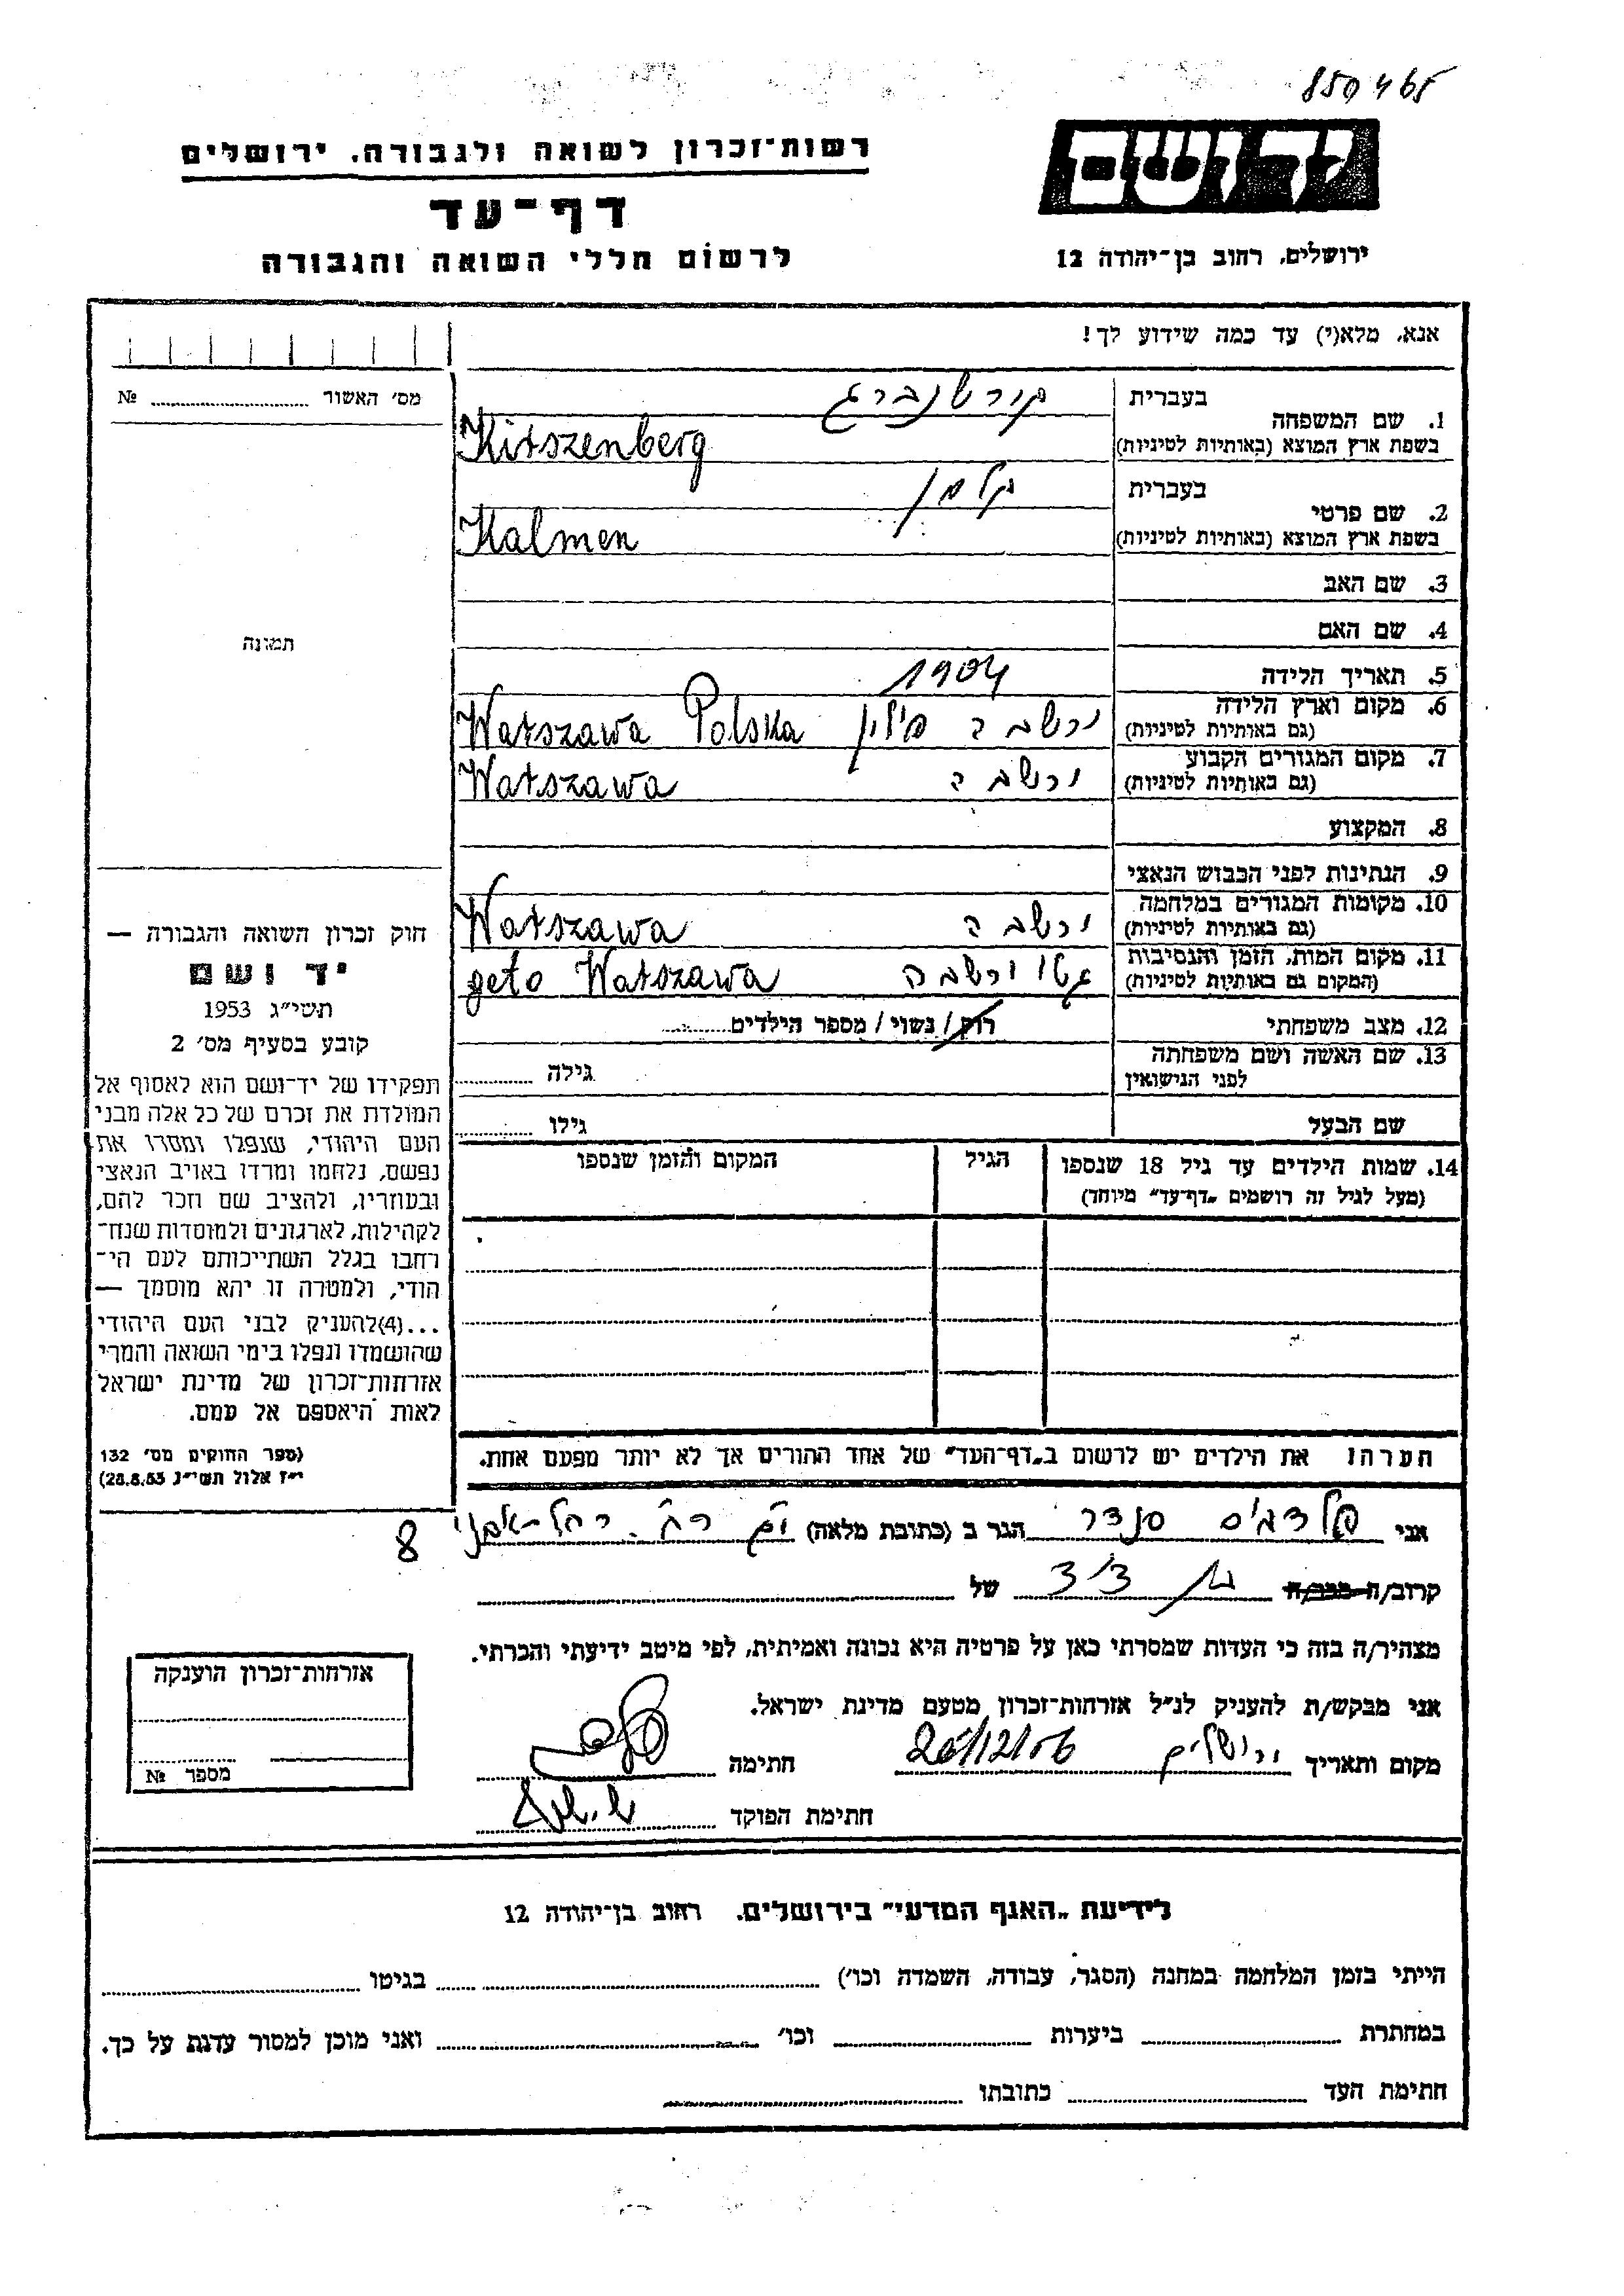 850465
רשות־זכרון לשואה ולגבורה, ירושלים
יד ושם
דף־עד
לרשום חללי השואה והגבורה
ירושלים, רחוב בן־יהודה 12
אנא, מלא(י) עד כמה שידוע לך!
מס׳ האשור № 
1. שם המשפחה
בעברית קורשנברג
בשפת ארץ המוצא (באותיות לטיניות) Kirszenberg
2. שם פרטי
בעברית קלמן
בשפת ארץ המוצא (באותיות לטיניות) Kalmen
3. שם האב
4. שם האם
תמונה
5. תאריך הלידה 1904
6. מקום וארץ הלידה ורשבה פולין Warszawa Polska
(גם באותיות לטיניות)
7. מקום המגורים הקבוע ורשבה Warszawa
(גם באותיות לטיניות)
8. המקצוע
9. הנתינות לפני הכבוש הנאצי
10. מקומות המגורים במלחמה ורשבה Warszawa
(גם באותיות לטיניות)
11. מקום המות, הזמן והנסיבות גטו ורשבה geto Warszawa
(המקום גם באותיות לטיניות)
12. מצב משפחתי רוק / נשוי / מספר הילדים
13. שם האשה ושם משפחתה גילה
לפני הנישואין
שם הבעל גילו
14. שמות הילדים עד גיל 18 שנספו הגיל המקום והזמן שנספו
(מעל לגיל זה רושמים „דף־עד״ מיוחד)
חוק זכרון השואה והגבורה —
יד ושם
תשי״ג 1953
קובע בסעיף מס׳ 2
תפקידו של יד־ושם הוא לאסוף אל
המולדת את זכרם של כל אלה מבני
העם היהודי, שנפלו ומסרו את
נפשם, נלחמו ומרדו באויב הנאצי
ובעוזריו, ולהציב שם וזכר להם,
לקהילות, לארגונים ולמוסדות שנח־
רחבו בגלל השתייכותם לעם הי־
הודי, ולמטרה זו יהא מוסמך —
...(4)להעניק לבני העם היהודי
שהושמדו ונפלו בימי השואה והמרי
אזרחות־זכרון של מדינת ישראל
לאות היאספם אל עמם.
(ספר החוקים מס׳ 132
י״ז אלול תשי״ג 28.8.53)
הערהו את הילדים יש לרשום ב„דף־העד״ של אחד ההורים אך לא יותר מפעם אחת.
אני סנדר הגר ב (כתובת מלאה) רח׳ 8
קרוב/ה מכר/ה של
מצהיר/ה בזה כי העדות שמסרתי כאן על פרטיה היא נכונה ואמיתית, לפי מיטב ידיעתי והכרתי.
אני מבקש/ת להעניק לנ״ל אזרחות־זכרון מטעם מדינת ישראל.
מקום ותאריך ירושלים 26/12/56 חתימה
חתימת הפוקד
אזרחות־זכרון הוענקה
מספר №
לידיעת „האגף המדעי״ בירושלים, רחוב בן־יהודה 12
הייתי בזמן המלחמה במחנה (הסגר, עבודה, השמדה וכו׳) בגיטו
במחתרת ביערות וכו׳ ואני מוכן למסור עדות על כך.
חתימת העד כתובתו